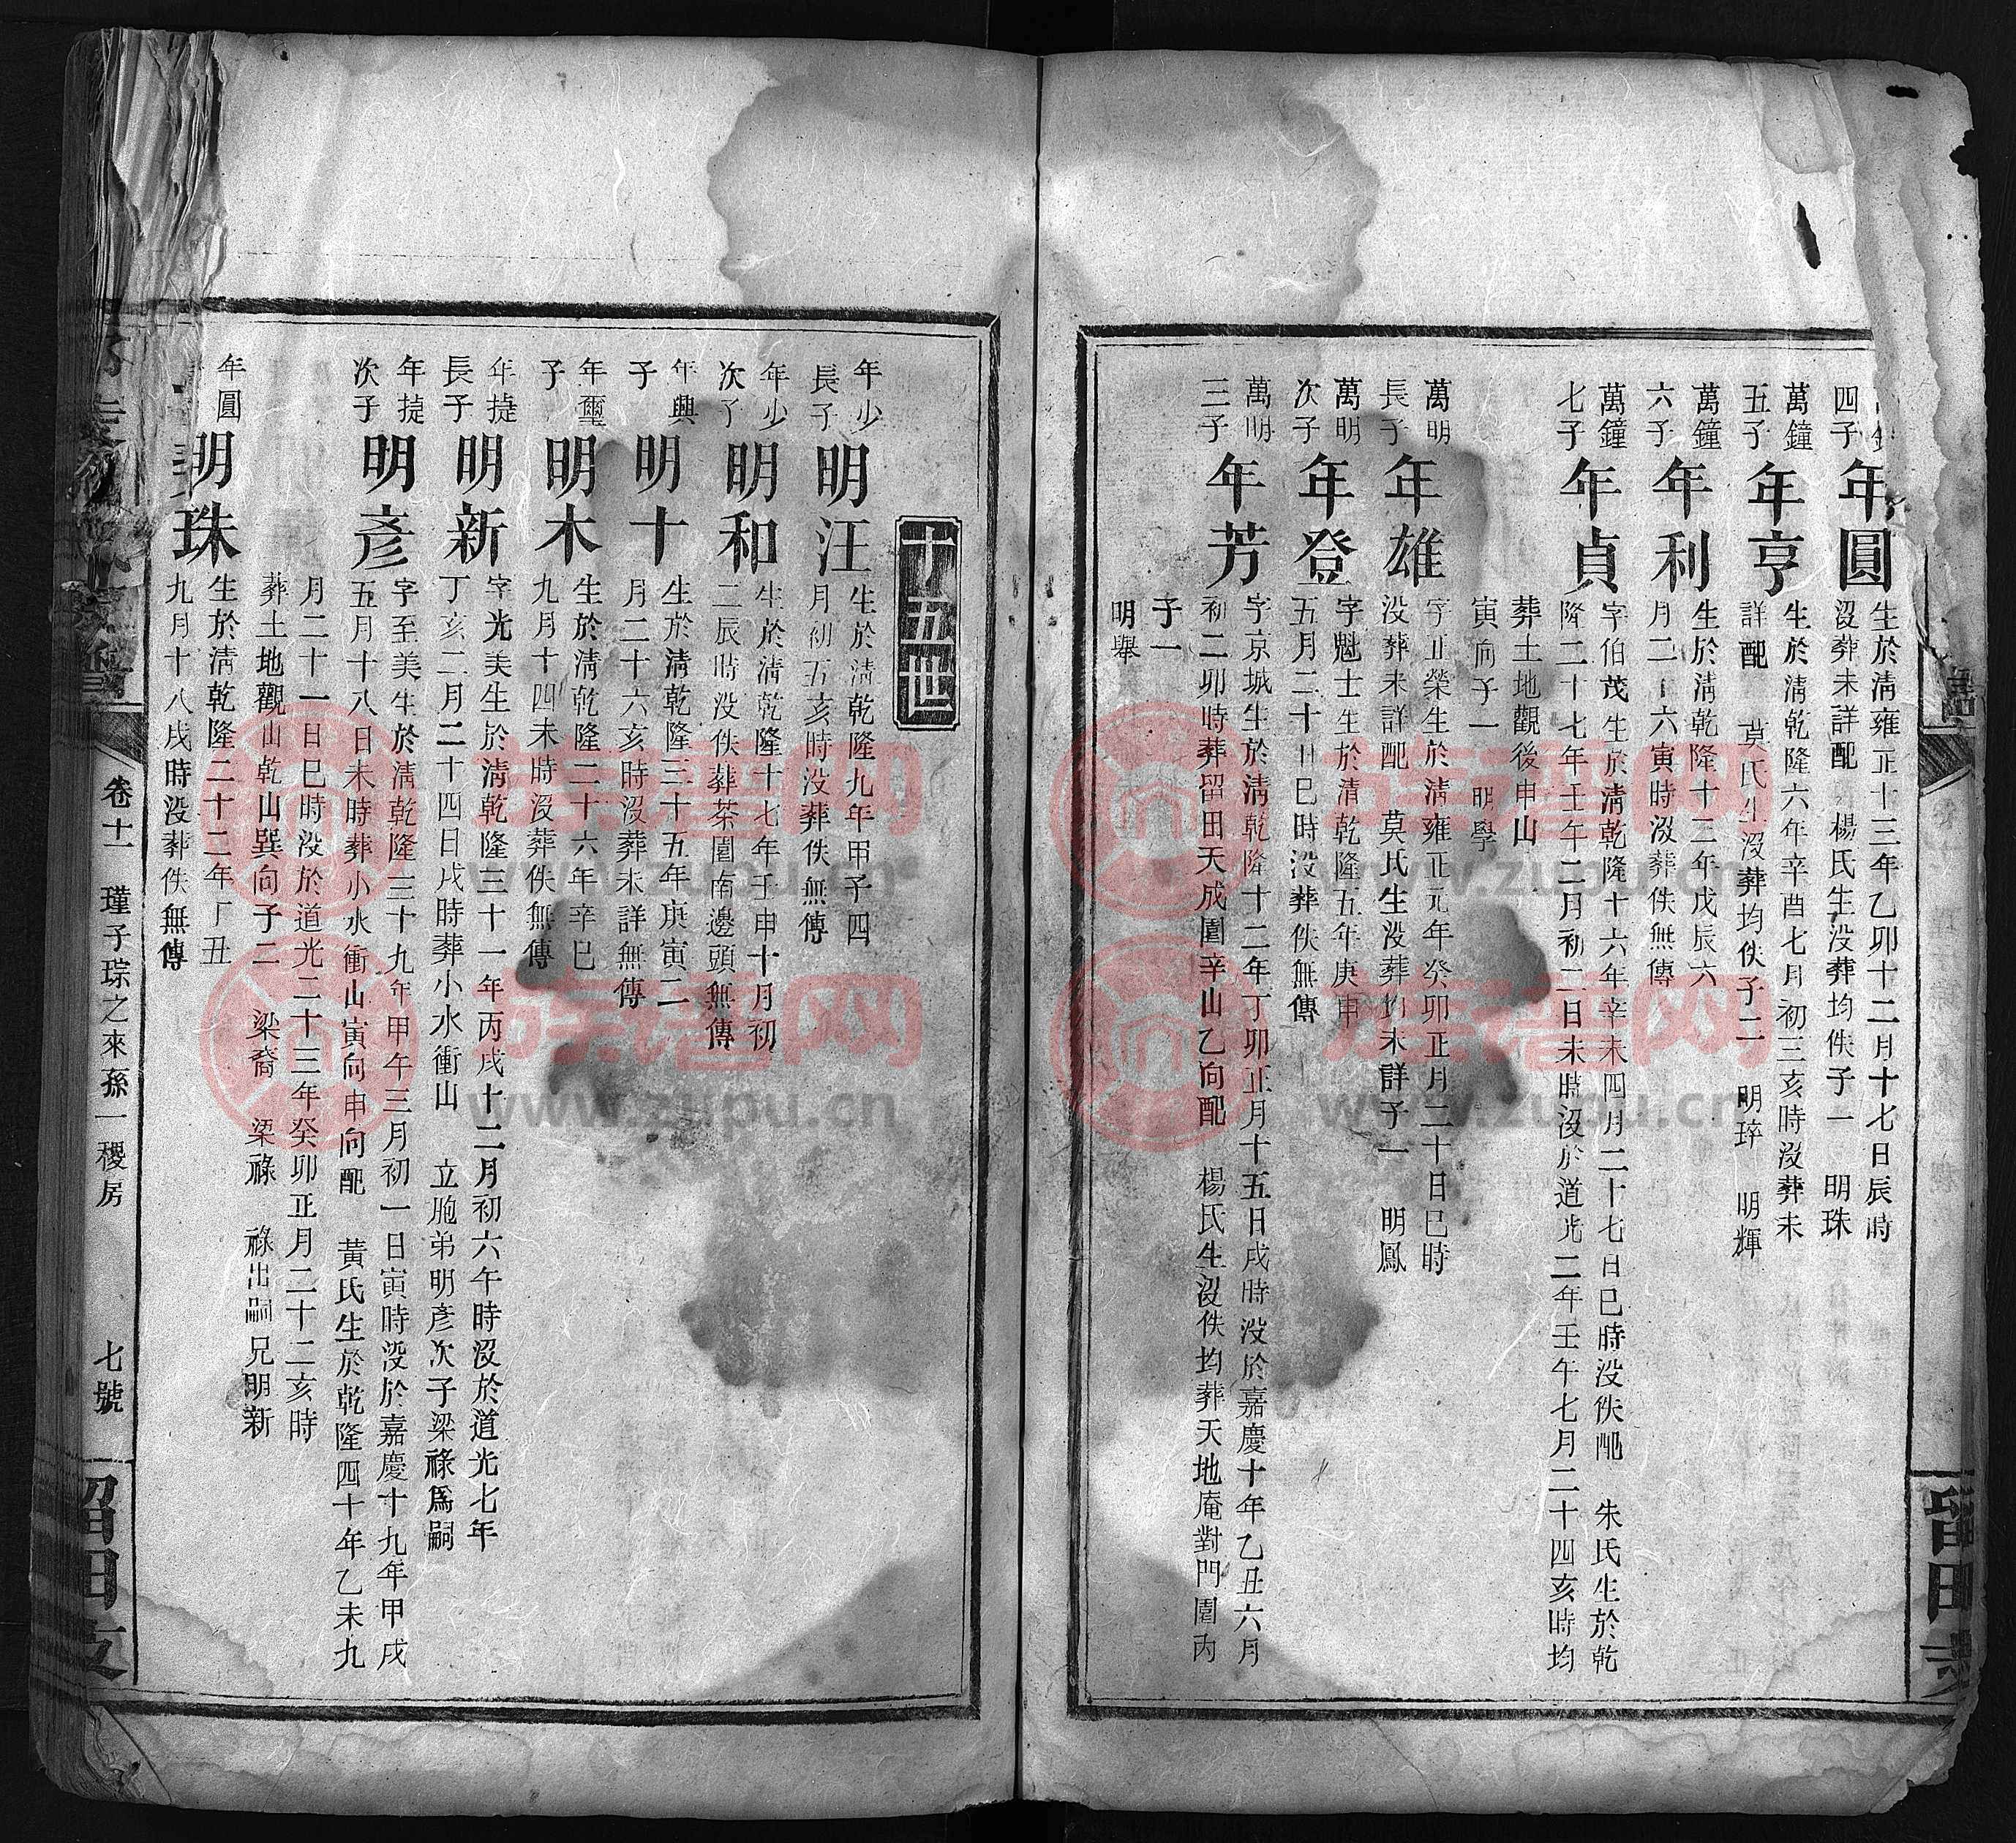 四子
年圓
生於清雍正十三年乙卯十二月十七日辰時
沒葬未詳配 楊氏生沒葬均佚子一 明珠
萬鐘
五子
年亨
生於清乾隆六年辛酉七月初三亥時沒葬未
詳配 莫氏生沒葬均佚子二 明琗 明輝
萬鐘
六子
年利
生於清乾隆十三年戊辰六
月二十六寅時沒葬佚無傳
萬鐘
七子
年貞
字伯茂生於清乾隆十六年辛未四月二十七日巳時沒佚配 朱氏生於乾
隆二十七年壬午二月初二日未時沒於道光二年壬午七月二十四亥時均
葬土地觀後申山
寅向子一 明學
萬明
長子
年雄
字正榮生於清雍正元年癸卯正月二十日巳時
沒葬未詳配 莫氏生沒葬均未詳子一 明鳳
萬明
次子
年登
字魁士生於清乾隆五年庚申
五月二十日巳時沒葬佚無傳
萬明
三子
年芳
字京城生於清乾隆十二年丁卯正月十五日戌時沒於嘉慶十年乙丑六月
初二卯時葬留田天成園辛山乙向配 楊氏生沒佚均葬天地庵對門園內
子一
明舉
十五世
年少
長子
明汪
生於清乾隆九年甲子四
月初五亥時沒葬佚無傳
年少
次子
明和
生於清乾隆十七年壬申十月初
二辰時沒佚葬茶園南邊頭無傳
年興
子
明十
生於清乾隆三十五年庚寅二
月二十六亥時沒葬未詳無傳
年璽
子
明木
生於清乾隆二十六年辛巳
九月十四未時沒葬佚無傳
年㨗
長子
明新
字光美生於清乾隆三十一年丙戌十二月初六午時沒於道光七年
丁亥二月二十四日戌時葬小水衝山 立胞弟明彥次子梁祿為嗣
年㨗
次子
明彥
字至美生於清乾隆三十九年甲午三月初一日寅時沒於嘉慶十九年甲戌
五月十八日未時葬小水衝山寅向申向配 黃氏生於乾隆四十年乙未九
月二十一日巳時沒於道光二十三年癸卯正月二十二亥時
葬土地觀山乾山巽向子二 梁裔 梁祿 祿出嗣兄明新
年圓
明珠
生於清乾隆二十二年丁丑
九月十八戌時沒葬佚無傳
卷十一 瑾子琮之來孫一稷房 七號
留田支
族谱网
www.zupu.cn
族谱网
www.zupu.cn
族谱网
www.zupu.cn
族谱网
www.zupu.cn